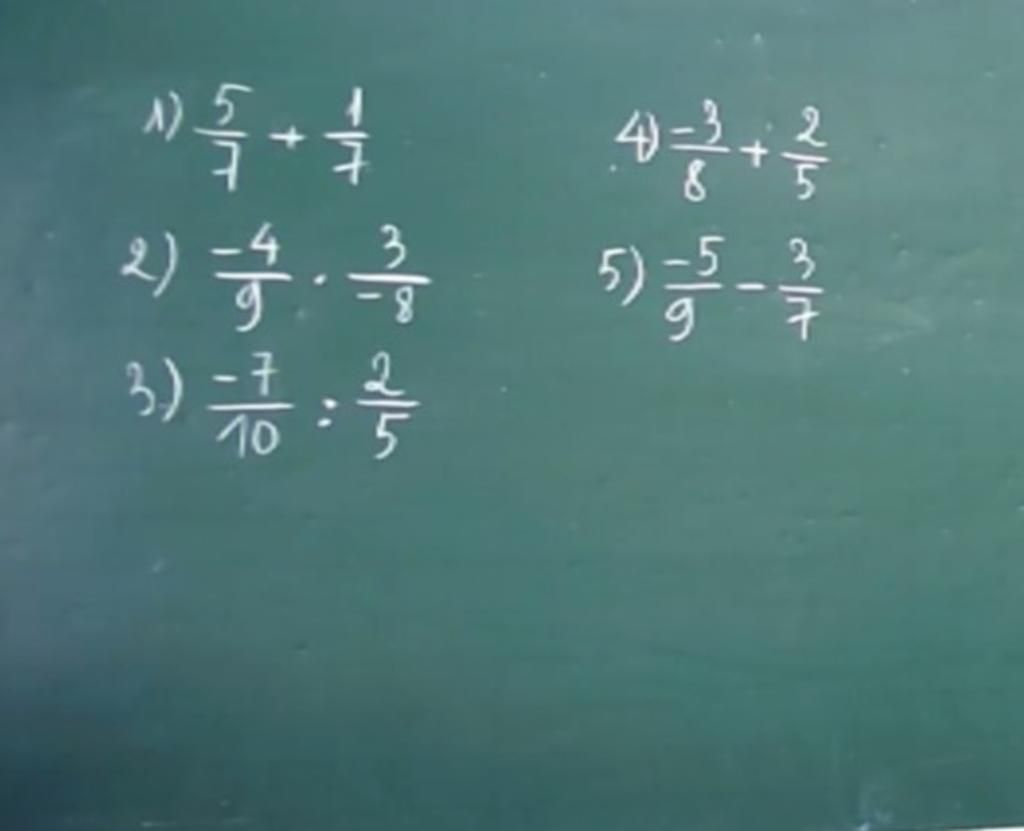 1) 5/7 + 1/7
2) -4/9 . 3/-8
3) -7/10 : 2/5
4) -3/8 + 2/5
5) -5/9 - 3/7